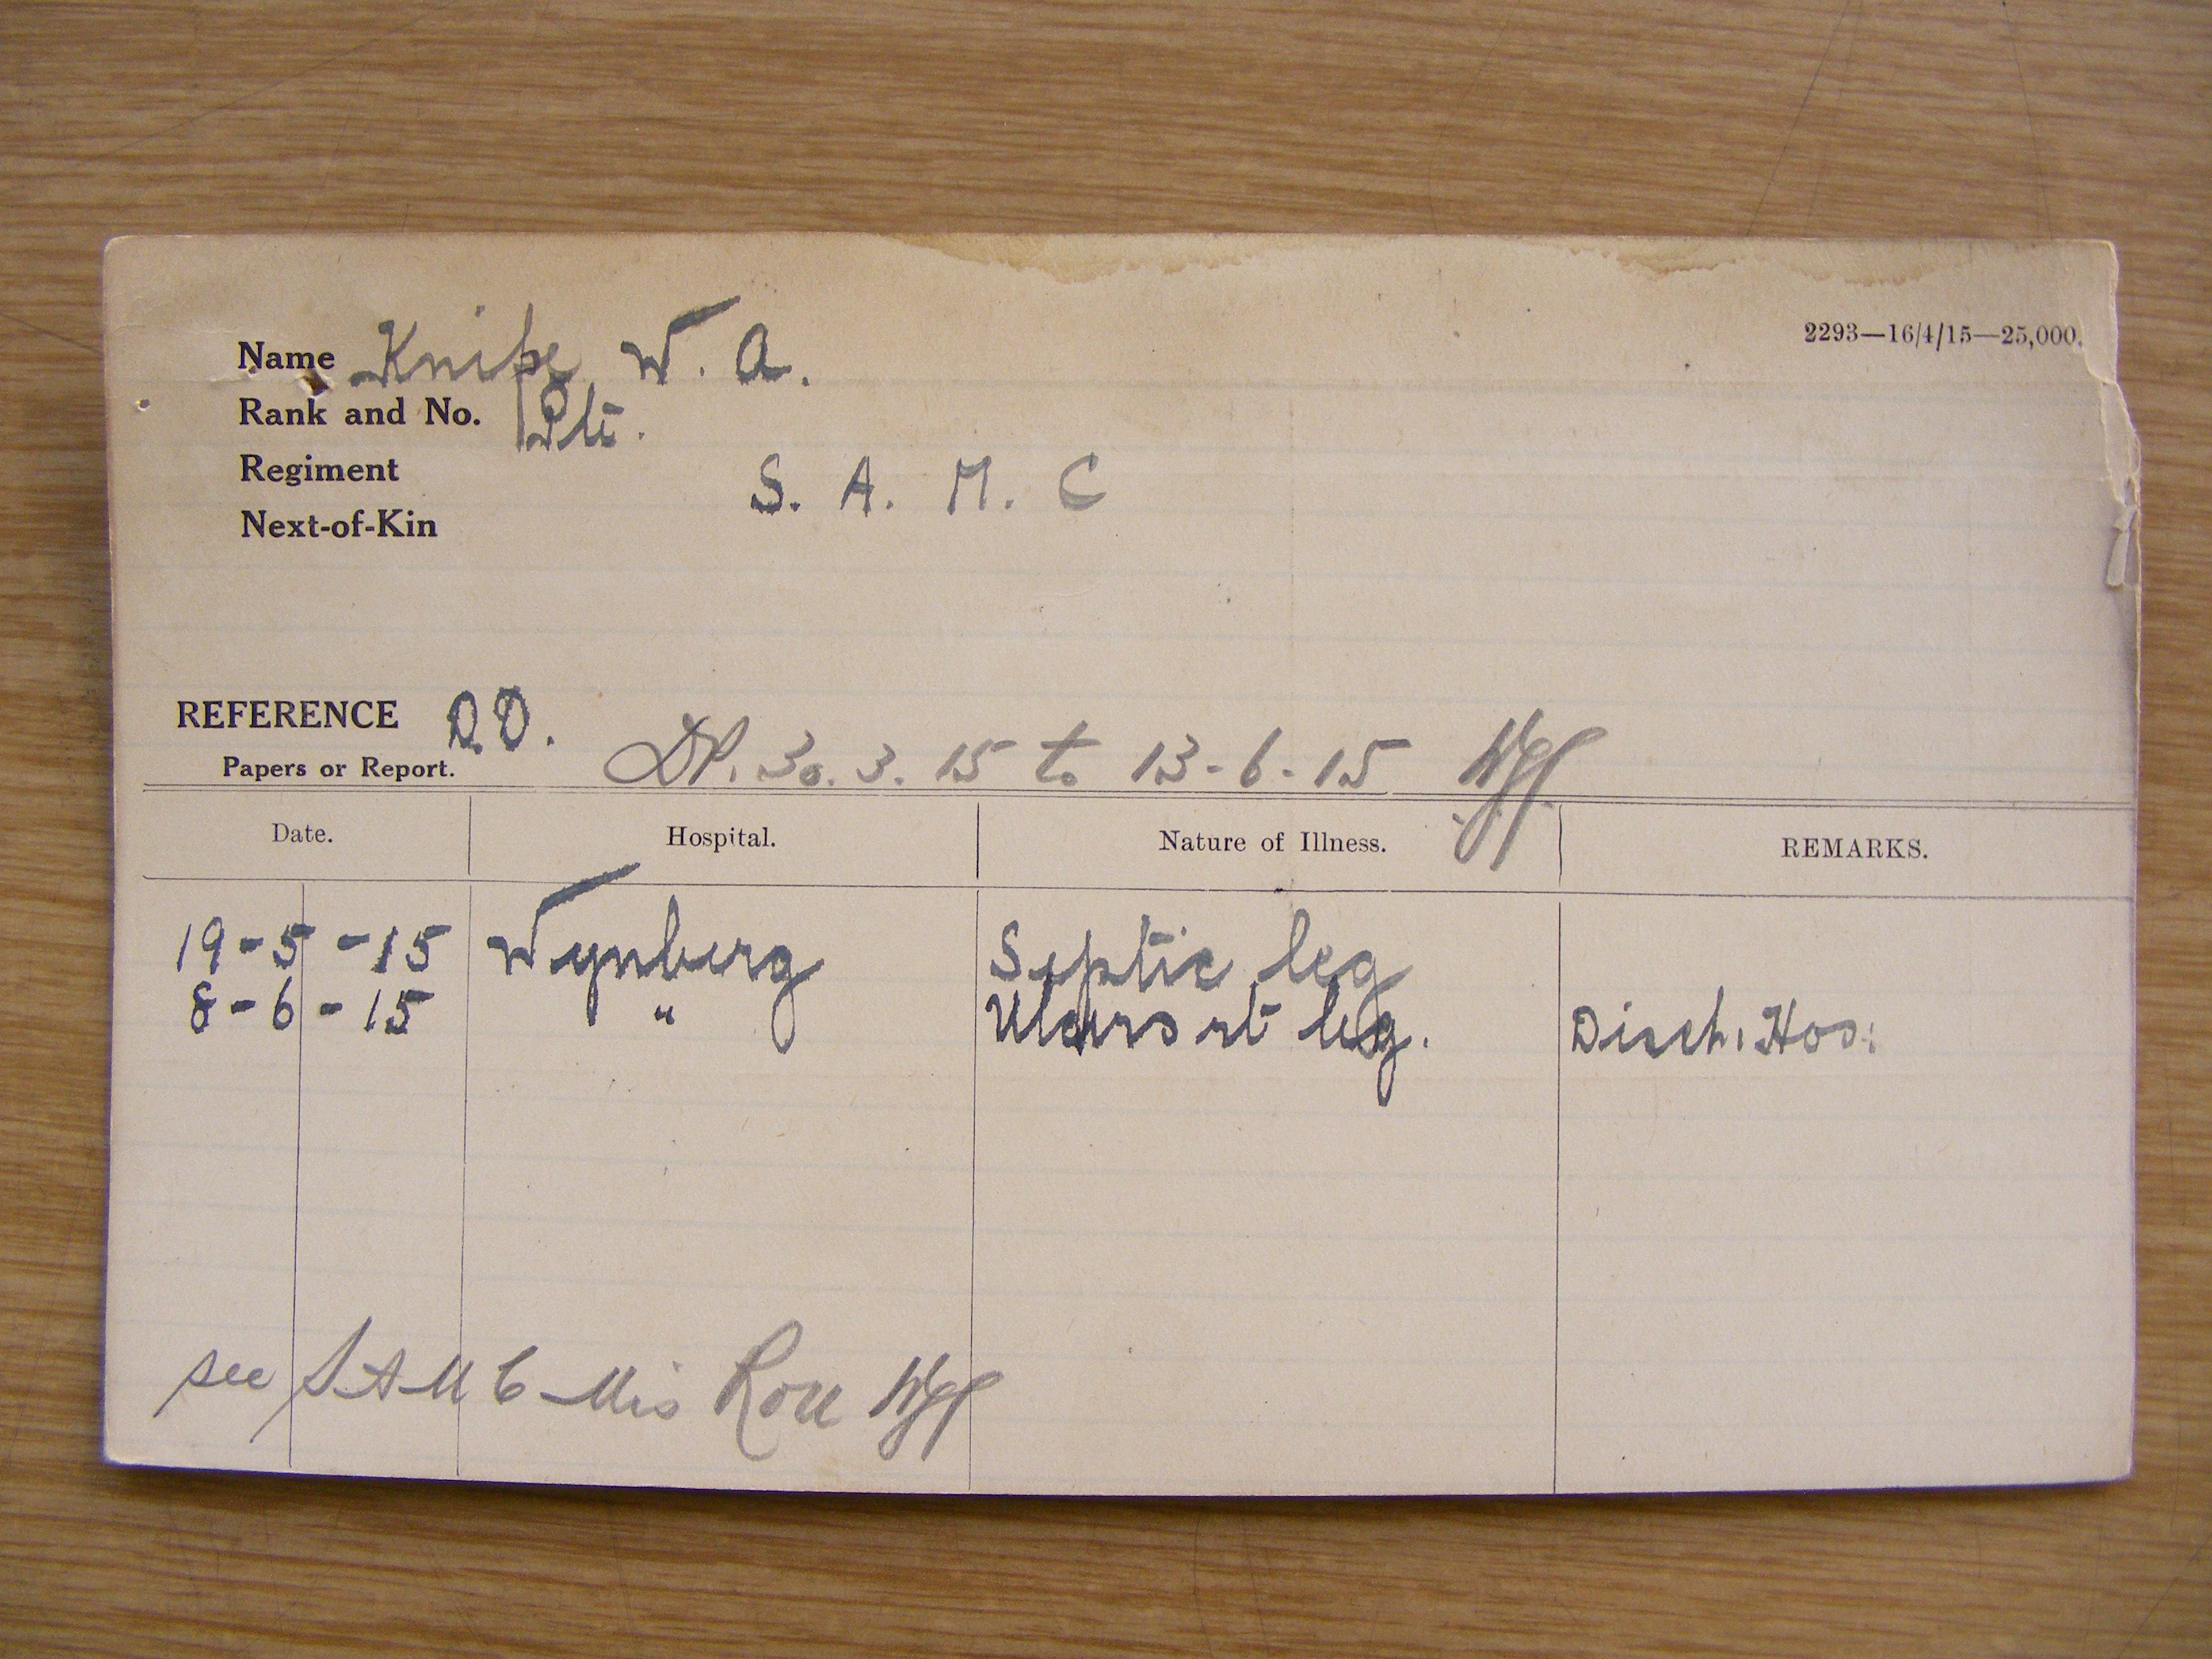 2293—16/4/15—25,000.
Name Knipe, W. A.
Rank and No. Pte.
Regiment S. A. M. C
Next-of-Kin
REFERENCE D.D.
Papers or Report. DP. 30. 3. 15 to 13-6-15
Date. Hospital. Nature of Illness. REMARKS.
19-5-15 Wynberg Septic leg
8-6-15 " Ulcers rt leg. Disch. Hos:
see SAMC Mis Roll